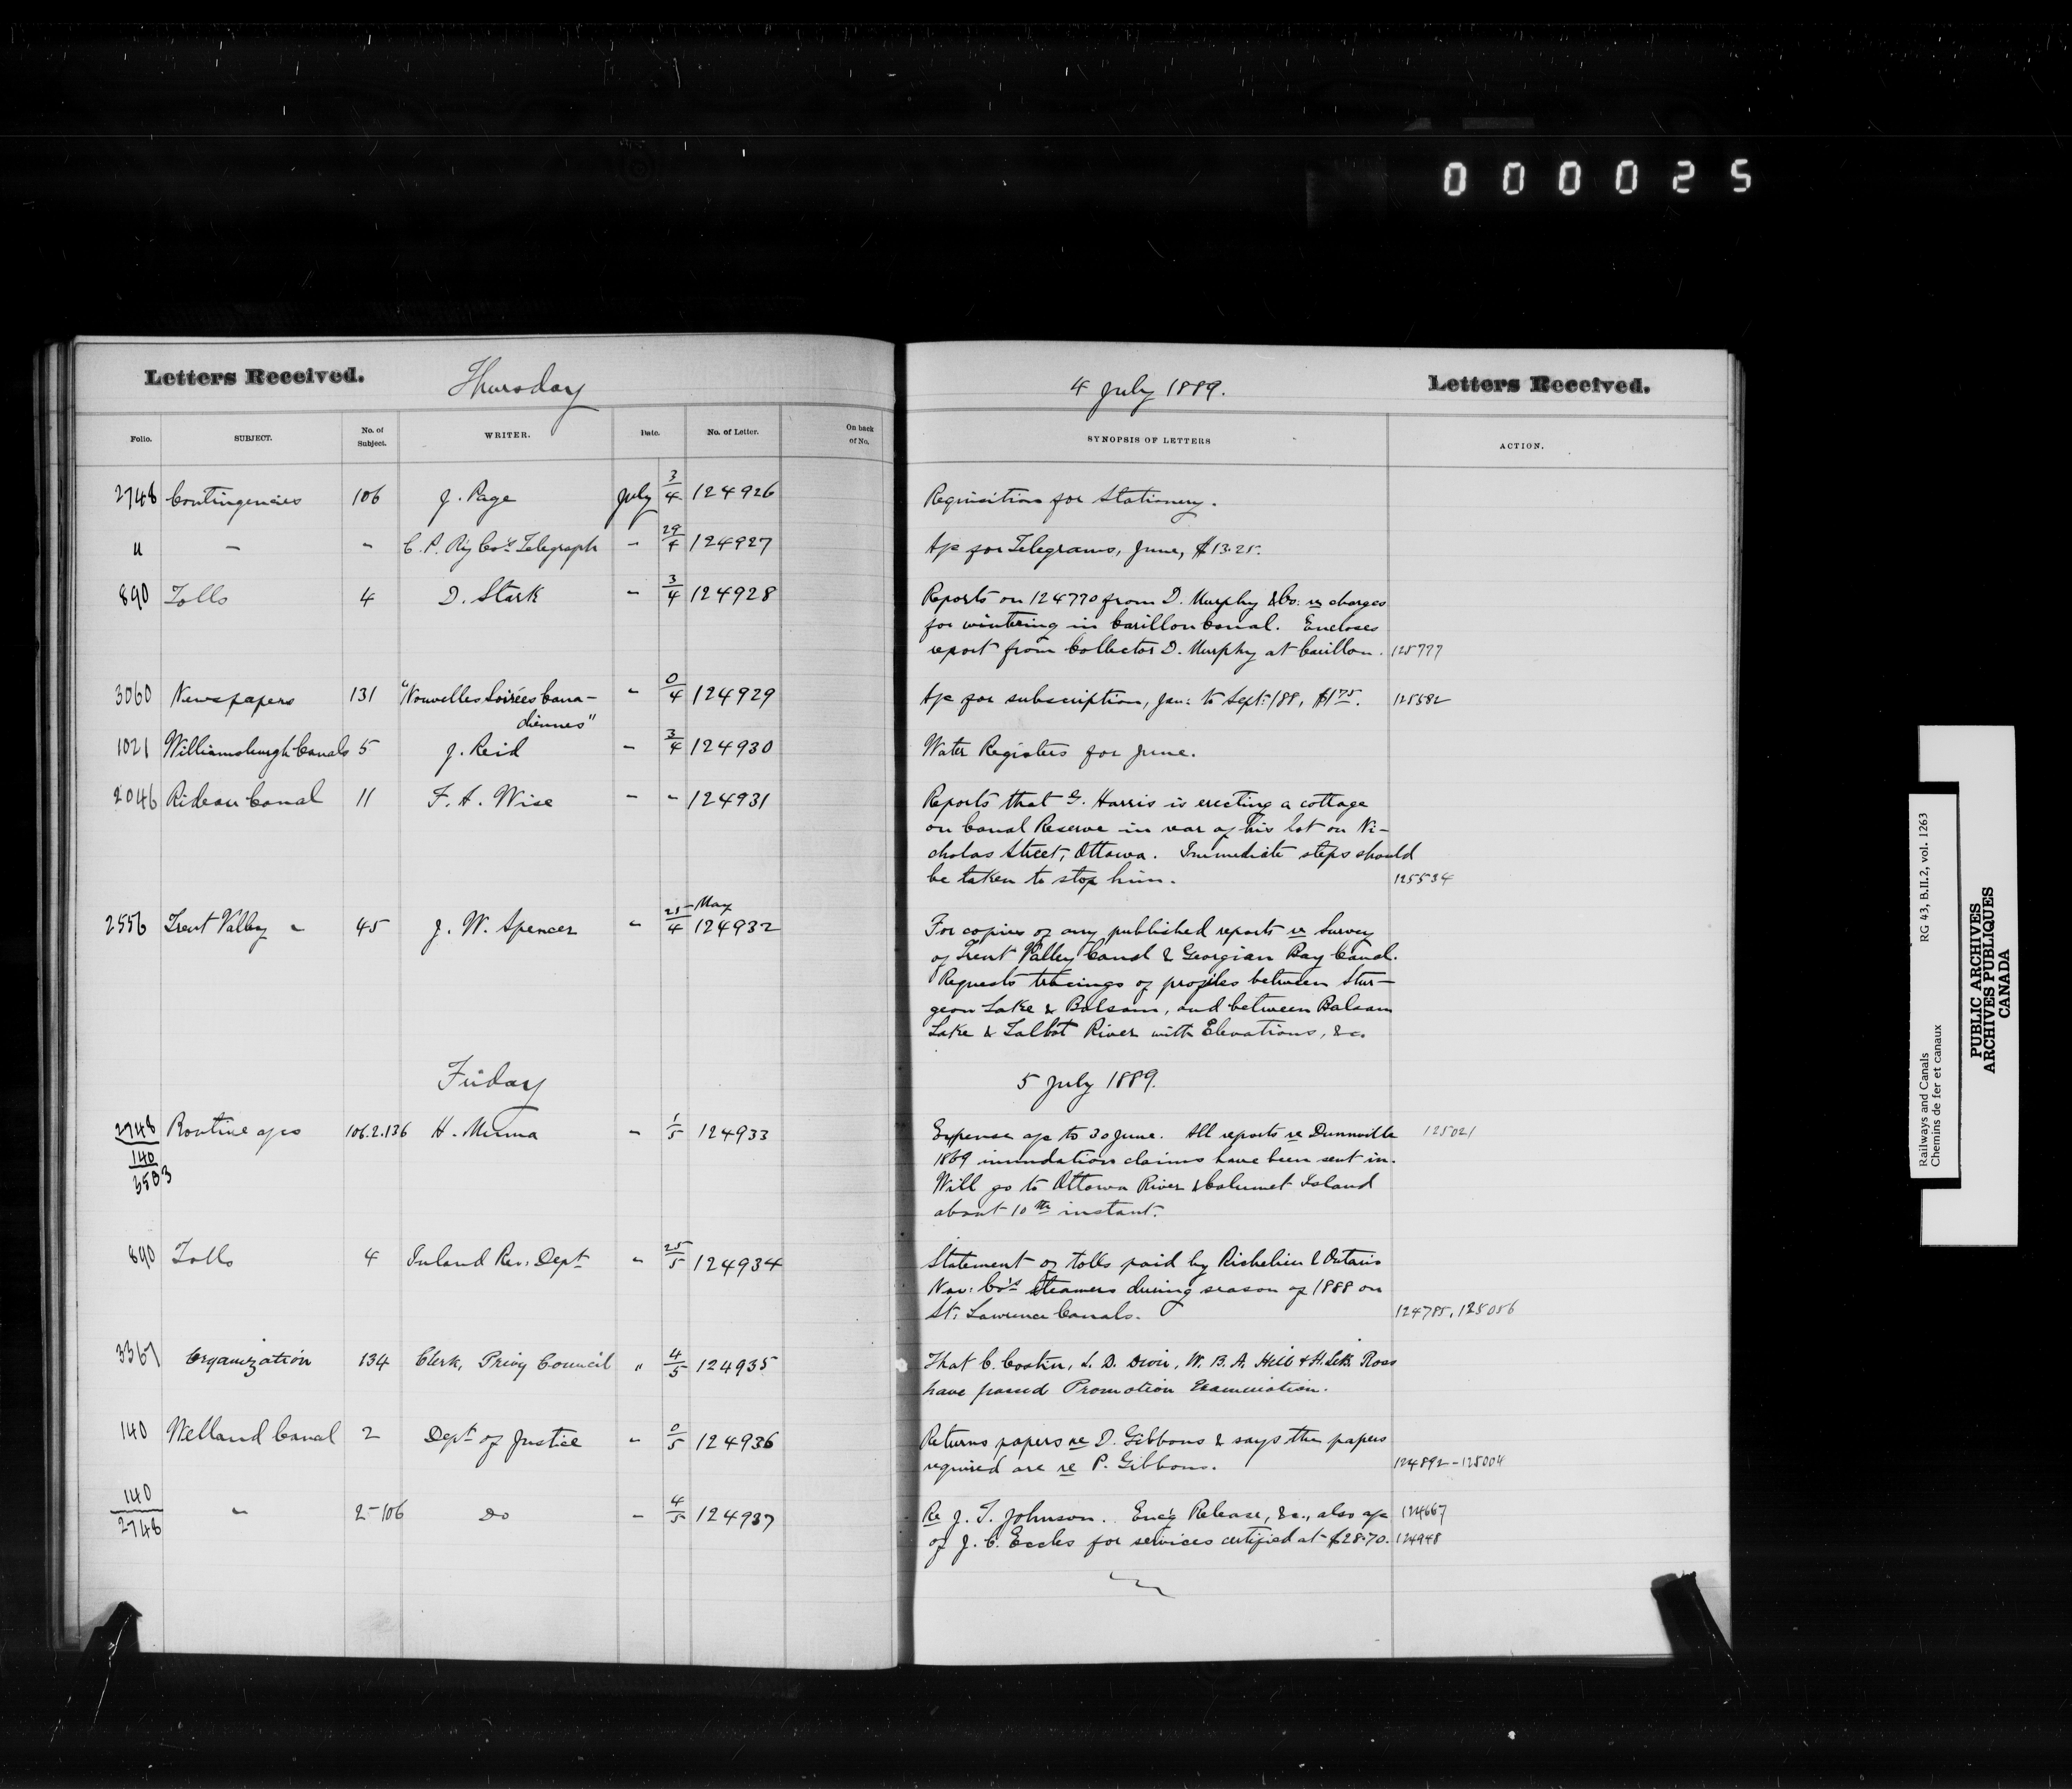 000025
Letters Received. Thursday
4 July 1889. Letters Received.
Folio. SUBJECT. No. of Subject. WRITER. Date. No. of Letter. On back of No. SYNOPSIS OF LETTERS ACTION.
2748 Contingencies 106 J. Page July 3/4 124926 Requisition for Stationery.
" – - C. P. Ry Co's Telegraph - 29/4 124927 A/c for Telegrams, June, $13.25.
890 Tolls 4 D. Stark - 3/4 124928 Reports on 124770 from D. Murphy & Co. re charges
for wintering in Carillon Canal. Encloses
report from Collector D. Murphy at Carillon. 125777
3060 Newspapers 131 "Nouvelles Soirées Cana- - 0/4 124929 A/c for subscription, Jan: to Sept: /88, $1 75. 125582
diennes"
1021 Williamsburgh Canals 5 J. Reid - 3/4 124930 Water Registers for June.
2046 Rideau Canal 11 F. A. Wise - - 124931 Reports that G. Harris is erecting a cottage
on Canal Reserve in rear of his lot on Ni-
cholas Street, Ottawa. Immediate steps should
be taken to stop him. 125534
2556 Trent Valley " 45 J. W. Spencer - 25 May/4 124932 For copies of any published reports re Survey
of Trent Valley Canal & Georgian Bay Canal.
Requests tracings of profiles between Stur-
geon Lake & Balsam, and between Balsam
Lake & Talbot River with Elevations, &c.
Friday 5 July 1889.
2748/140/3583 Routine a/cs 106.2.136 H. Muma - 1/5 124933 Expense a/c to 30 June. All reports re Dunnville 125021
1869 inundation claims have been sent in.
Will go to Ottawa River & Calumet Island
about 10th instant.
890 Tolls 4 Inland Rev: Dept - 25/5 124934 Statement of tolls paid by Richelieu & Ontario
Nav: Co's steamers during season of 1888 on
St. Lawrence Canals. 124785, 125056
3367 Organization 134 Clerk, Privy Council " 4/5 124935 That C. Costin, L. D. W. B. A. Hill & H. Ross
have passed Promotion Examination.
140 Welland Canal 2 Dept of Justice - 0/5 124936 Returns papers re D. Gibbons & says the papers
required are re P. Gibbons. 124892 - 125004
140/2748 " 2-106 Do - 4/5 124937 Re J. T. Johnson. Enc'g Release, &c., also a/c 124667
of J. C. Eccles for services certified at $28.70. 124948
Railways and Canals RG 43, B.II.2, vol. 1263
Chemins de fer et canaux
PUBLIC ARCHIVES
ARCHIVES PUBLIQUES
CANADA